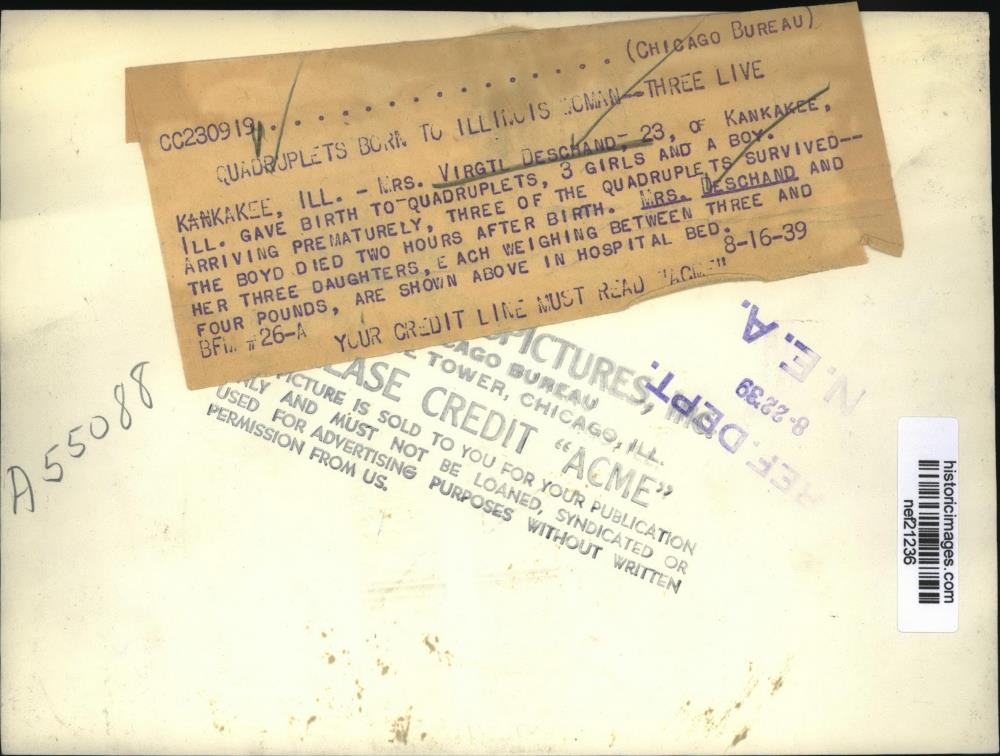 CC230919. . . . . . . . . . . . . . . . . (CHICAGO BUREAU)
QUADRUPLETS BORN TO ILLINOIS WOMAN--THREE LIVE
KANKAKEE, ILL. - MRS. VIRGIL DESCHAND, 23, OF KANKAKEE,
ILL. GAVE BIRTH TO QUADRUPLETS, 3 GIRLS AND A BOY.
ARRIVING PREMATURELY, THREE OF THE QUADRUPLETS SURVIVED--
THE BOYD DIED TWO HOURS AFTER BIRTH. MRS. DESCHAND AND
HER THREE DAUGHTERS, EACH WEIGHING BETWEEN THREE AND
FOUR POUNDS, ARE SHOWN ABOVE IN HOSPITAL BED.
BFM #26-A YOUR CREDIT LINE MUST READ "ACME" 8-16-39
PICTURES, INC.
CAGO BUREAU
TOWER, CHICAGO, ILL.
EASE CREDIT "ACME"
PICTURE IS SOLD TO YOU FOR YOUR PUBLICATION
ONLY AND MUST NOT BE LOANED, SYNDICATED OR
USED FOR ADVERTISING PURPOSES WITHOUT WRITTEN
PERMISSION FROM US.
REF. DEPT.
8-22-39
N. E. A.
A55088
historicimages.com
nef21236